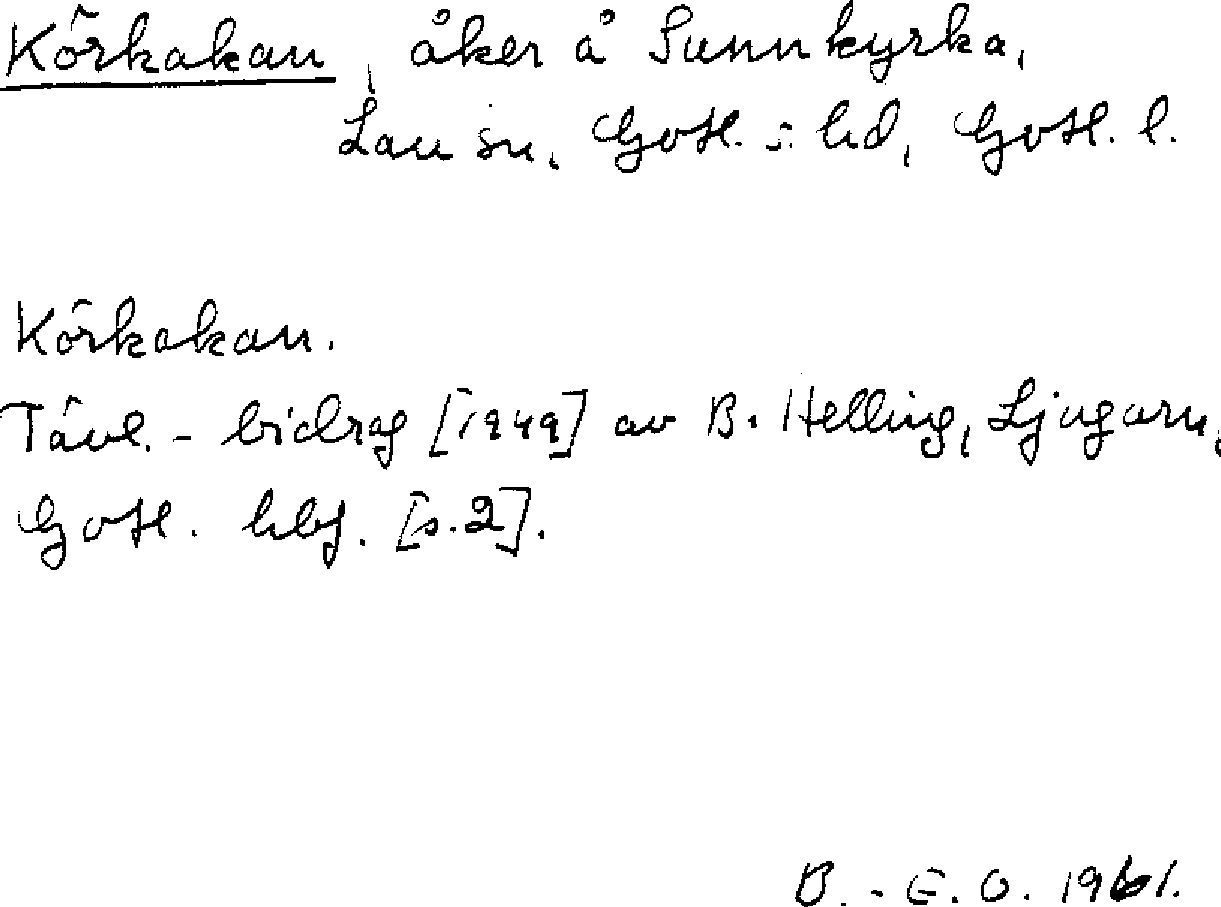 Körkakan, åker å Sunnkyrka,
Lau sn, Gotl. s. hd, Gotl. l.
Körkakan.
Tävl. - bidrag [1949] av B. Helling, Ljugarn,
Gotl. hbf. [s. 2].
B. - E. O. 1961.